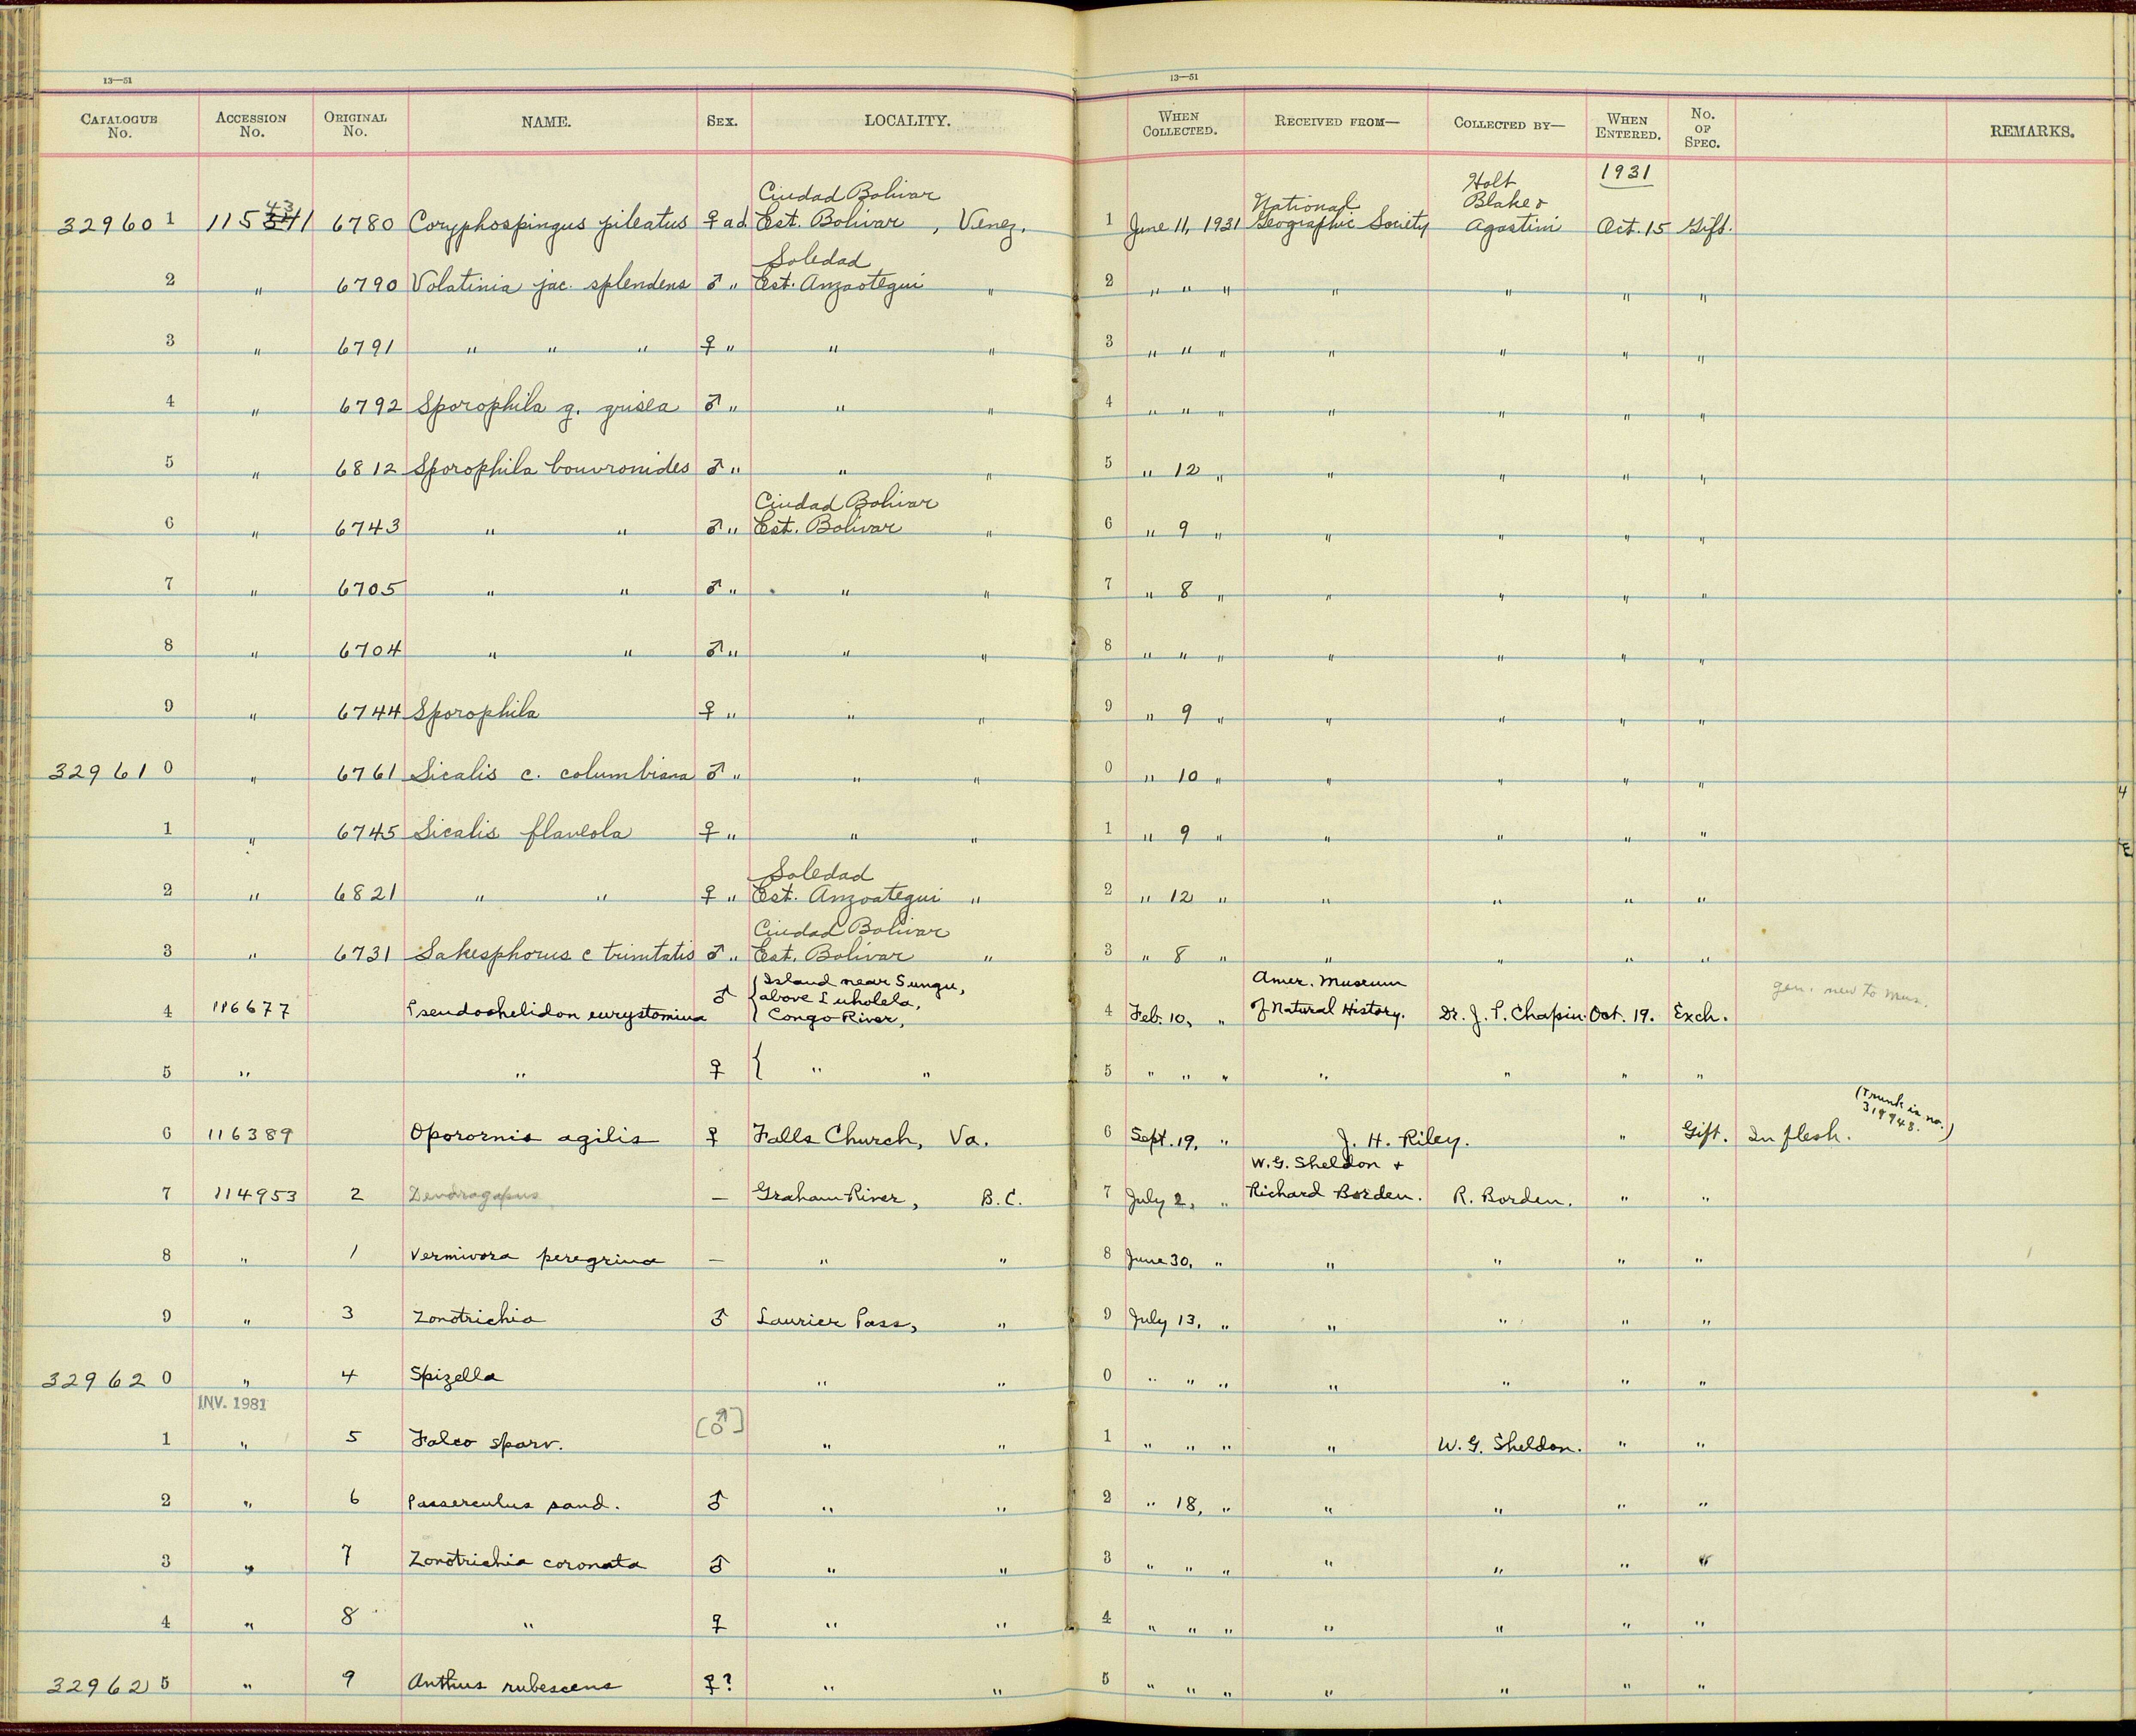 13—51
13—51
CATALOGUE No. ACCESSION No. ORIGINAL No. NAME. SEX. LOCALITY. WHEN COLLECTED. RECEIVED FROM— COLLECTED BY— WHEN ENTERED. No. OF SPEC. REMARKS.
1931
Ciudad Bolivar National Holt Blake &
32960 1 115 43 341 6780 Coryphospingus pileatus ♀ ad. Est. Bolivar, Venez. 1 June 11, 1931 Geographic Society Agostini Oct. 15 Gift.
Soledad
2 " 6790 Volatinia jac. splendens ♂ " Est. Anzaotegui " 2 " " " " " " "
3 " 6791 " " " ♀ " " " 3 " " " " " " "
4 " 6792 Sporophila g. grisea ♂ " " " 4 " " " " " " "
5 " 6812 Sporophila bouvronides ♂ " " " 5 " 12 " " " " "
Ciudad Bolivar
6 " 6743 " " ♂ " Est. Bolivar " 6 " 9 " " " " "
7 " 6705 " " ♂ " " " 7 " 8 " " " " "
8 " 6704 " " ♂ " " " 8 " " " " " " "
9 " 6744 Sporophila ♀ " " " 9 " 9 " " " " "
32961 0 " 6761 Sicalis c. columbiana ♂ " " " 0 " 10 " " " " "
1 " 6745 Sicalis flaveola ♀ " " " 1 " 9 " " " " "
Soledad
2 " 6821 " " ♀ " Est. Anzoategui " 2 " 12 " " " " "
Ciudad Bolivar
3 " 6731 Sakesphorus c trinitatis ♂ " Est. Bolivar " 3 " 8 " " " " "
Island near Sungu, Amer. Museum
above Lukolela, gen. new to Mus.
4 116677 Pseudochelidon eurystomina ♂ Congo River, 4 Feb. 10, " of Natural History. Dr. J. P. Chapin. Oct. 19. Exch.
5 " " ♀ { " " 5 " " " " " " "
(Trunk is no. 319948.)
6 116389 Oporornis agilis ♀ Falls Church, Va. 6 Sept. 19, " J. H. Riley. " Gift. In flesh.
W. G. Sheldon +
7 114953 2 Dendragapus — Graham River, B.C. 7 July 2, " Richard Borden. R. Borden. " "
8 " 1 Vermivora peregrina — " " 8 June 30, " " " " "
9 " 3 Zonotrichia ♂ Laurier Pass, " 9 July 13, " " " " "
32962 0 " 4 Spizella " " 0 " " " " " " "
INV. 1981
1 " 5 Falco sparv. [♂] " " 1 " " " " W. G. Sheldon. " "
2 " 6 Passerculus sand. ♂ " " 2 " 18, " " " " "
3 " 7 Zonotrichia coronata ♂ " " 3 " " " " " " "
4 " 8 " ♀ " " 4 " " " " " " "
32962 5 " 9 Anthus rubescens ♀? " " 5 " " " " " " "